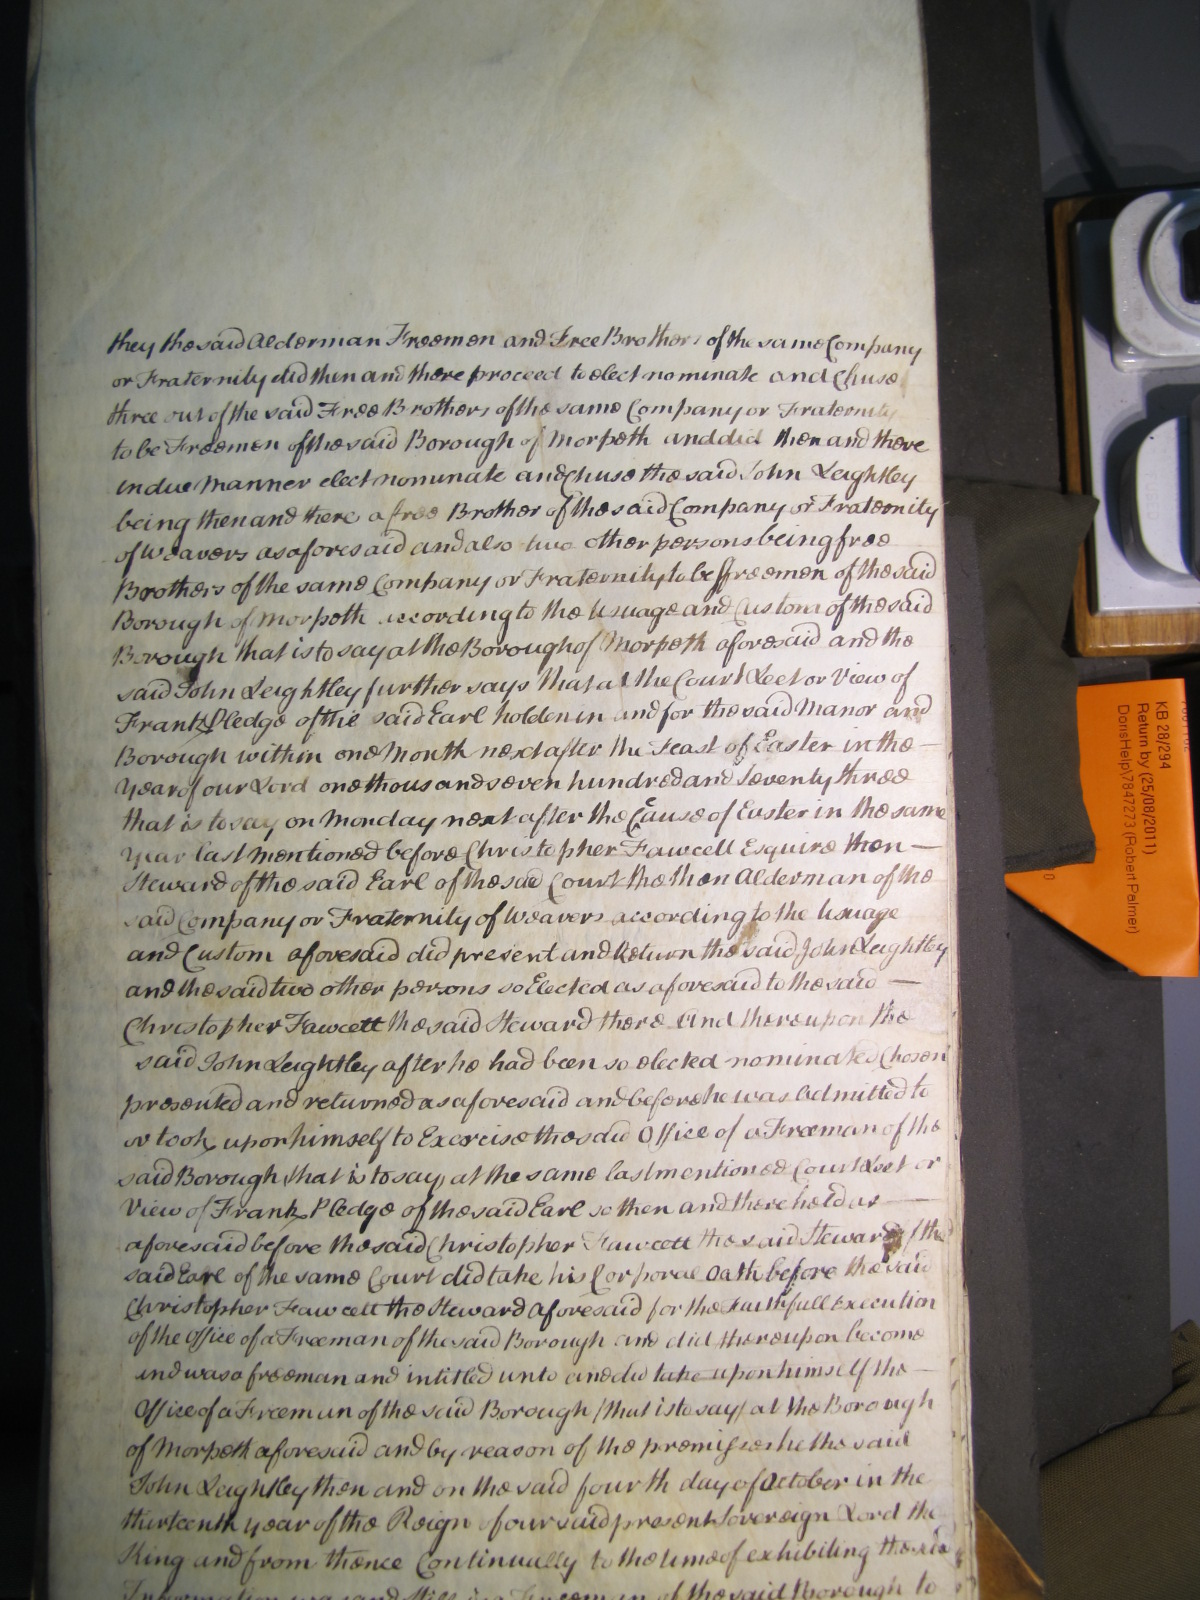 they the said Alderman Freemen and Free Brothers of the same Company
or Fraternity did then and there proceed to elect nominate and Chuse
three out of the said Free Brothers of the same Company or Fraternity
to be Freemen of the said Borough of Morpeth and did then and there
in due Manner elect nominate and Chuse the said John Leightley
being then and there a free Brother of the said Company or Fraternity
of Weavers as aforesaid and also two other persons being free
Brothers of the same Company or Fraternity to be ffreemen of the said
Borough of Morpeth according to the Usuage and Custom of the said
Borough that is to say at the Borough of Morpeth aforesaid and the
said John Leightley further says that at the Court Leet or View of
Frank Pledge of the said Earl holden in and for the said Manor and
Borough within one Month next after the Feast of Easter in the —
Year of our Lord one thousand seven hundred and Seventy three
that is to say on Monday next after the Cause of Easter in the same
Year last mentioned before Christopher Fawcett Esquire then —
Steward of the said Earl of the said Court the then Alderman of the
said Company or Fraternity of Weavers according to the Usuage
and Custom aforesaid did present and Return the said John Leightley
and the said two other persons so Elected as aforesaid to the said —
Christopher Fawcett the said Steward there And thereupon the
said John Leightley after he had been so elected nominated Chosen
presented and returned as aforesaid and before he was admitted to
or took upon himself to Exercise the said Office of a Freeman of the
said Borough (that is to say) at the same last mentioned Court Leet or
View of Frank Pledge of the said Earl so then and there held as —
aforesaid before the said Christopher Fawcett the said Steward of the
said Earl of the same Court did take his Corporal Oath before the said
Christopher Fawcett the Steward aforesaid for the Faithfull Execution
of the Office of a Freeman of the said Borough and did thereupon become
and was a freeman and intitled unto and did take upon himself the —
Office of a Freeman of the said Borough (that is to say) at the Borough
of Morpeth aforesaid and by reason of the premisses he the said
John Leightley then and on the said fourth day of October in the
thirteenth year of the Reign of our said present Sovereign Lord the
King and from thence Continually to the time of exhibiting the said
Information was and still is a Freeman of the said Borough to
KB 28/294
Return by (25/08/2011)
DorisHelp\7847273 (Robert Palmer)